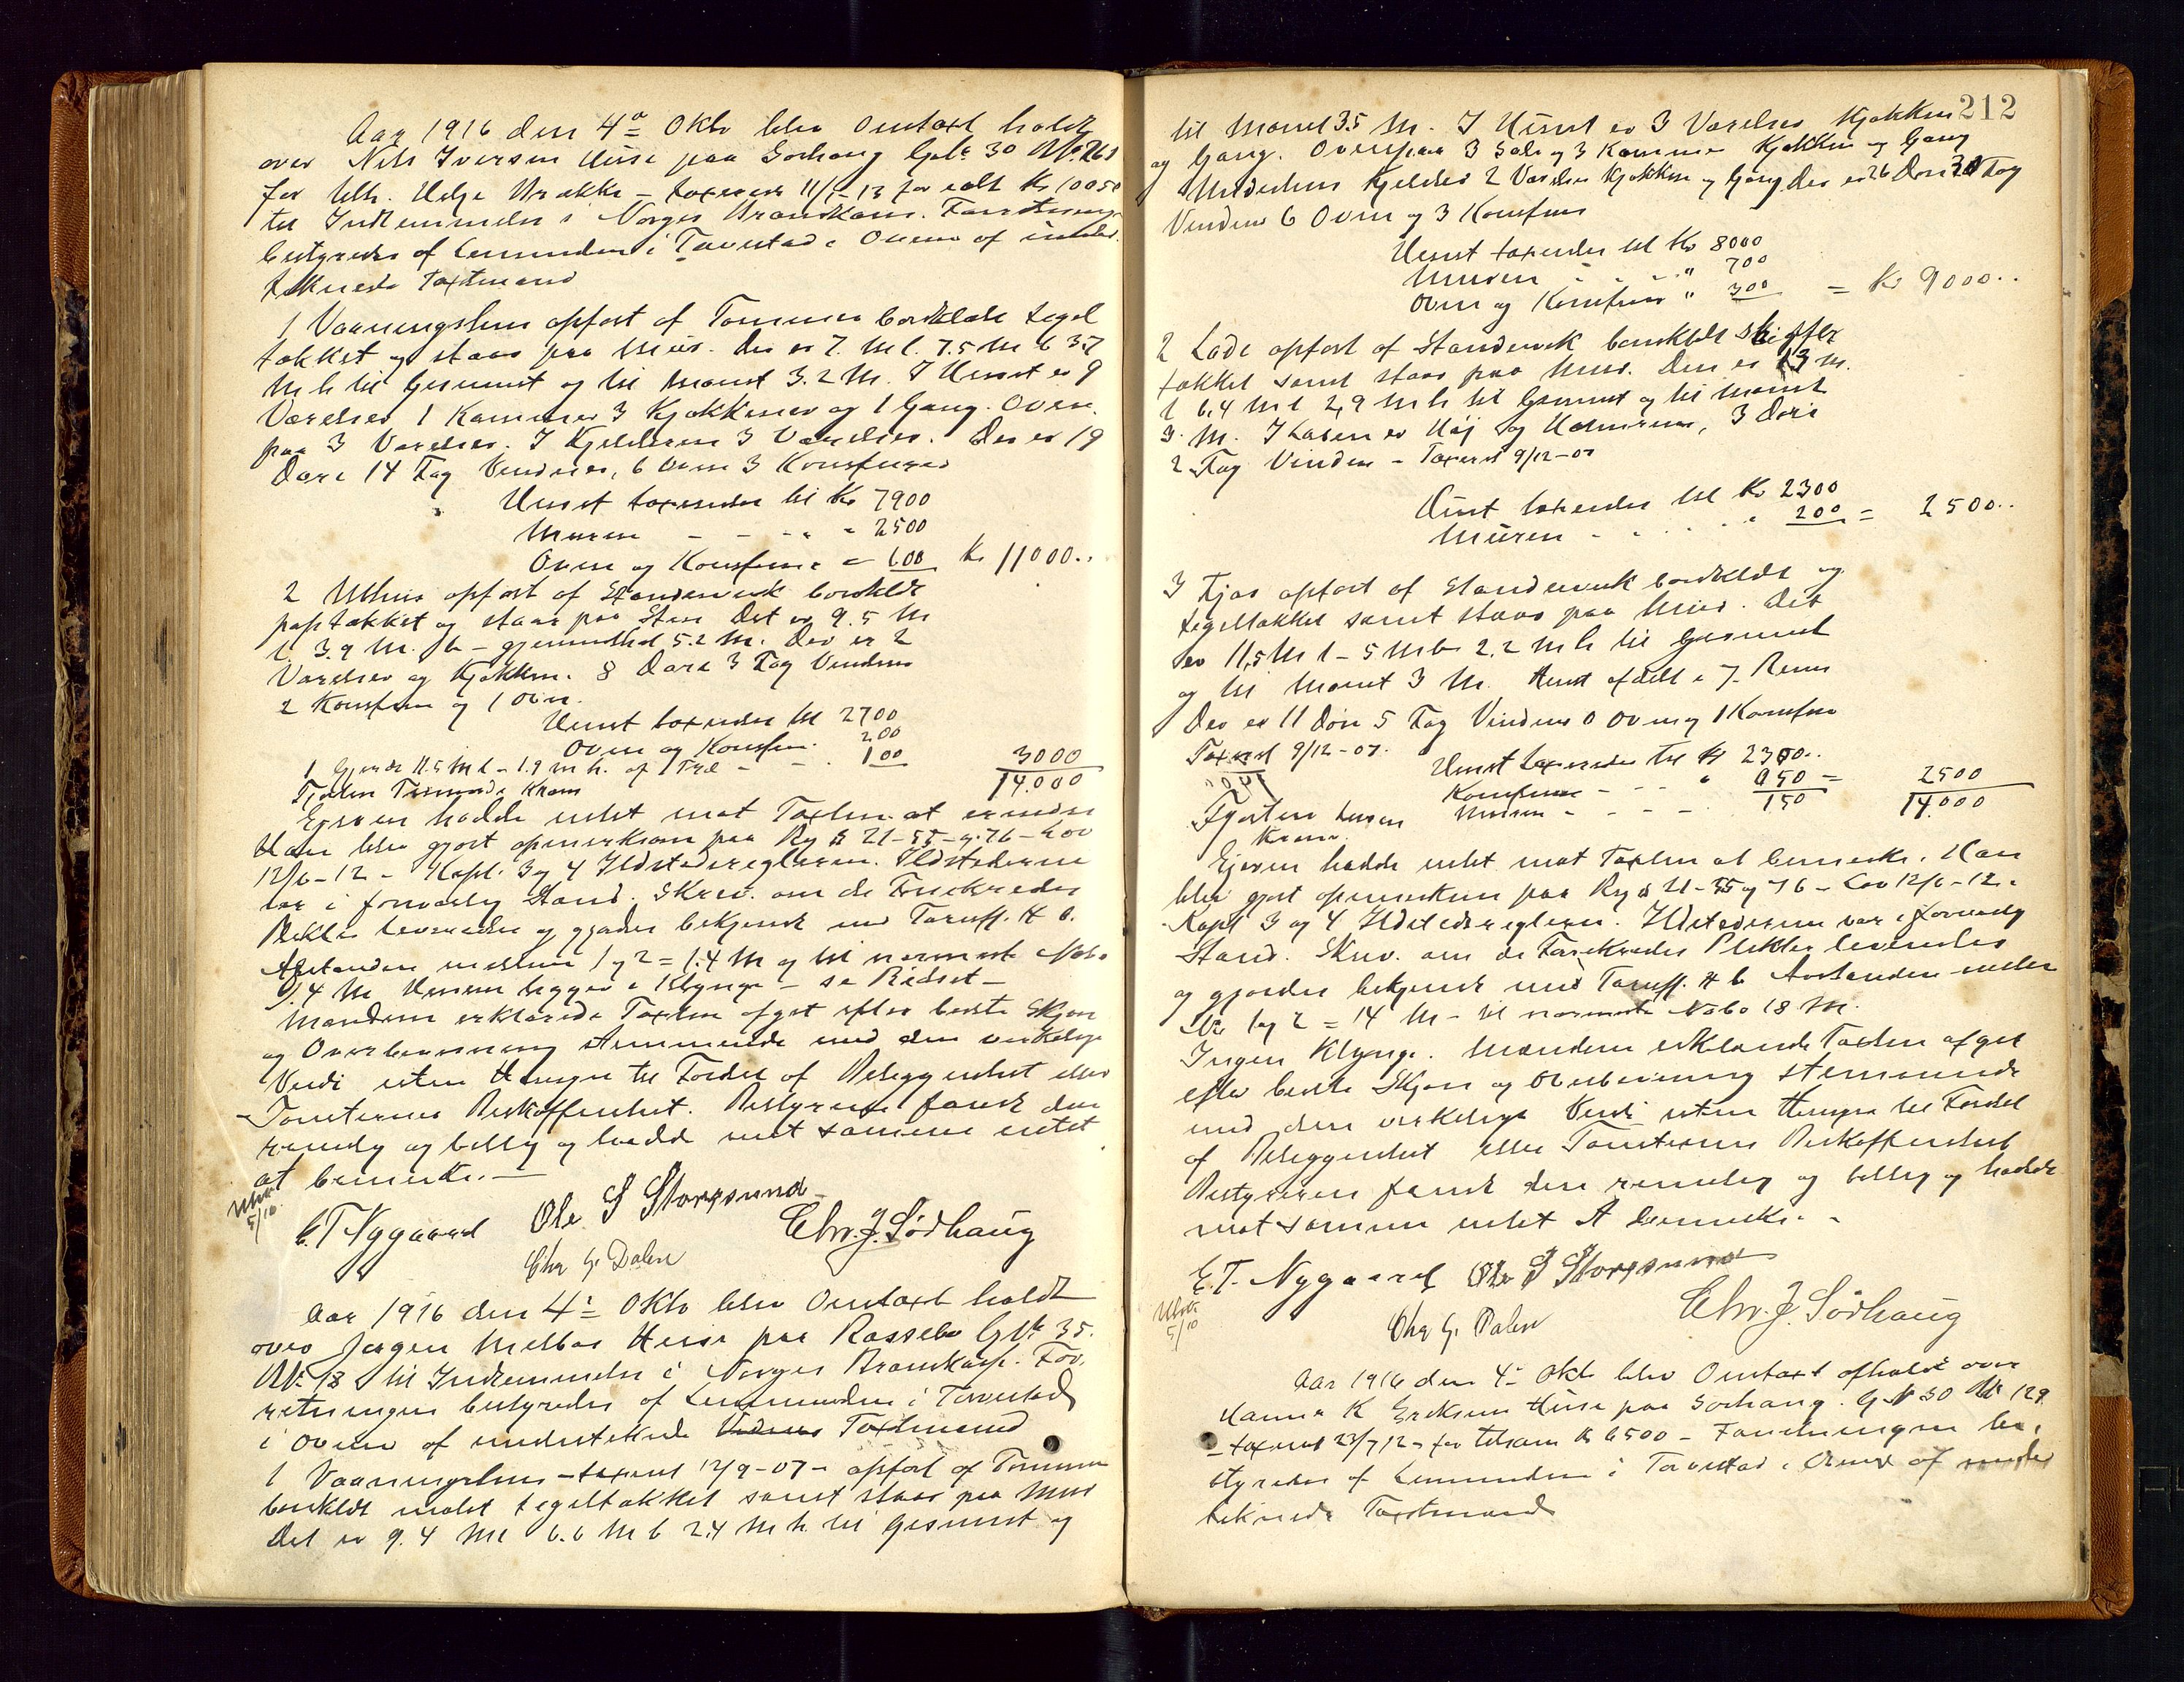 Aar 1916 den 4de Oktb blev Omtaxt holdt
over Nils Iversen Huse paa Sørhaug G.No 30 B.No 268
for Utk. Helje - taxeret 11/ - 13 for ialt Kr 10050
til Indlemmelse i Norges Brandkasse. Forretning
bestyredes af Lensmanden i Torvestad i Overv af under
teknede Taxtmænd
1 Vaaningshus opført af Tømmer bordklædt tegl
tækket og staar paa Mur. Der er 7. M l. 7.5 M b 3.7
M h til Gesimset og til Mønet 3.2 M. I Huset er 9
Værelser 1 Kammer 3 Kjøkkener og 1 Gang. Oven
paa 3 Værelser. I Kjelderen 3 Værelser. Der er 19
Døre 14 Fag Vinduer, 6 Ovne 3 Komfurer
Huset taxeredes til Kr 7900
Muren - - - - 2500
Ovne og Komfurer - 600 Kr 11000..
2 Uthus opført af Standerverk bordklædt
paptækket og staar paa Sten Det er 9.5 M
l. 3.9 M. b - gjennemsnit 5.2 M. Der er 2
Værelser og Kjøkken. 8 Døre 3 Fag Vinduer
2 Komfurer og 1 Ovn.
Huset taxeredes til 2700
Ovne og Komfur. 200
1 Gjerde 11.5 M l - 1.9 M h. af Træ - - . 100 3000
Fjorten Tusinde Kroner 14.000
Ejeren hadde intet mot Taxten at erindre
Han blev gjort opmerksom paa Rg § 21-55- og 76- Lov
12/6-12 - Kapl. 3 og 4 Ildstedsreglerne. Ildstederne
var i forsvarlig Stand. Skrev. om de Foreskrevne
Plikter leveredes og gjordes bekjendt med Tariff. H b.
Afstanden mellem 1 og 2 = 1.4 M og til nærmeste Nabo
9.4 M Husene ligger i Klynge - se Ridset -
Mændene erklærede Taxten afgit efter bedste Skjøn
og Overbevisning stemmende med den virkelige
Verdi uten Hensyn til Fordel af Beliggenhet eller
Tomternes Beskaffenhet. Bestyreren fandt den
rimelig og billig og hadde mot samme intet
at bemerke. -
Utskr
5/10.
E. T. Nygaard Ole S Storesund
Chr G. Dalen Chr. J. Sørhaug
Aar 1916 den 4de Oktb blev Omtaxt holdt
over Jørgen Huse paa Rossebø G.No 35.
B.No 18 til Indlemmelse i Norges Brandkasse. For
retningen bestyredes af Lensmanden i Torvestad
i Overv af underteknede Taxtmænd
1 Vaaningshus - taxeret 12/9-07 - opført af Tømmer
bordklædt malet tegeltækket samt staar paa Mur
Det er 9.4 M l 6.6 M b 2.4 M h til Gesimset og
212
til Mønet 3.5 M. I Huset er 3 Værelser Kjøkken
og Gang. Ovenpaa 3 Sale og 3 Kammer Kjøkken og Gang
Underhus Kjelder 2 Værelser Kjøkken og Gang Der er 26 Døre 20 Fag
Vinduer 6 Ovne og 3 Komfurer
Huset taxeredes til Kr 8000
Muren - - - " 700
Ovne og Komfurer " 300 = Kr 9000..
2 Lade opført af Standerverk bordklædt skiffer
tækket samt staar paa Mur. Den er 13 M.
l 6,4 M b 2,9 M h til Gesimset og til Mønet
3. M. I Laden er Høj og Kornrum, 3 Døre
2 Fag Vinduer - Taxeret 9/12-07
Huset taxeredes til Kr 2300
Muren - . . . . 200 = 2500..
3 Fjøs opført af Standerverk bordklædt og
tegeltækket samt staar paa Mur. Det
er 11,5 M l - 5 M b 2.2 M h til Gesimset
og til Mønet 3 M. Huset afdelt i 7 Rum
Der er 11 Døre 5 Fag Vinduer 0 Ovn og 1 Komfur
Taxeret 9/12-07.
Huset taxeredes til Kr 2300..
Komfuren - - - " 050 = 2500
Fjorten tusen Muren - - - 150 14.000
Kroner.
Ejeren hadde intet mot Taxten at bemerke. Han
blev gjort opmerksom paa Rg § 21-55 og 76 - Lov 12/6-12.
Kapl 3 og 4 Ildstedsreglerne. Ildstederne var i forsvarlig
Stand. Skrev. om de Foreskrevne Plikter leveredes
og gjordes bekjendt med Tariff. H b Avstanden mellem
No 1 og 2 = 14 M - til nærmeste Nabo 18 M.
Ingen Klynge. Mændene erklærede Taxten afgit
efter bedste Skjøn og Overbevisning stemmende
med den virkelige Verdi uten Hensyn til Fordel
af Beliggenhet eller Tomternes Beskaffenhet
Bestyreren fandt den rimelig og billig og hadde
mot samme intet at bemerke. -
Utskr.
5/10
E. T. Nygaard Ole S Storesund
Chr G. Dalen Chr. J. Sørhaug
Aar 1916 den 4de Oktb blev Omtaxt afholdt over
Hanna K Eriksen Huse paa Sørhaug. G.No 30 B.No 129
- taxeret 23/7 12 - for tilsam Kr 6500 - Forretningen be
styredes af Lensmanden i Torvestad i Overv af under
teknede Taxtmænd